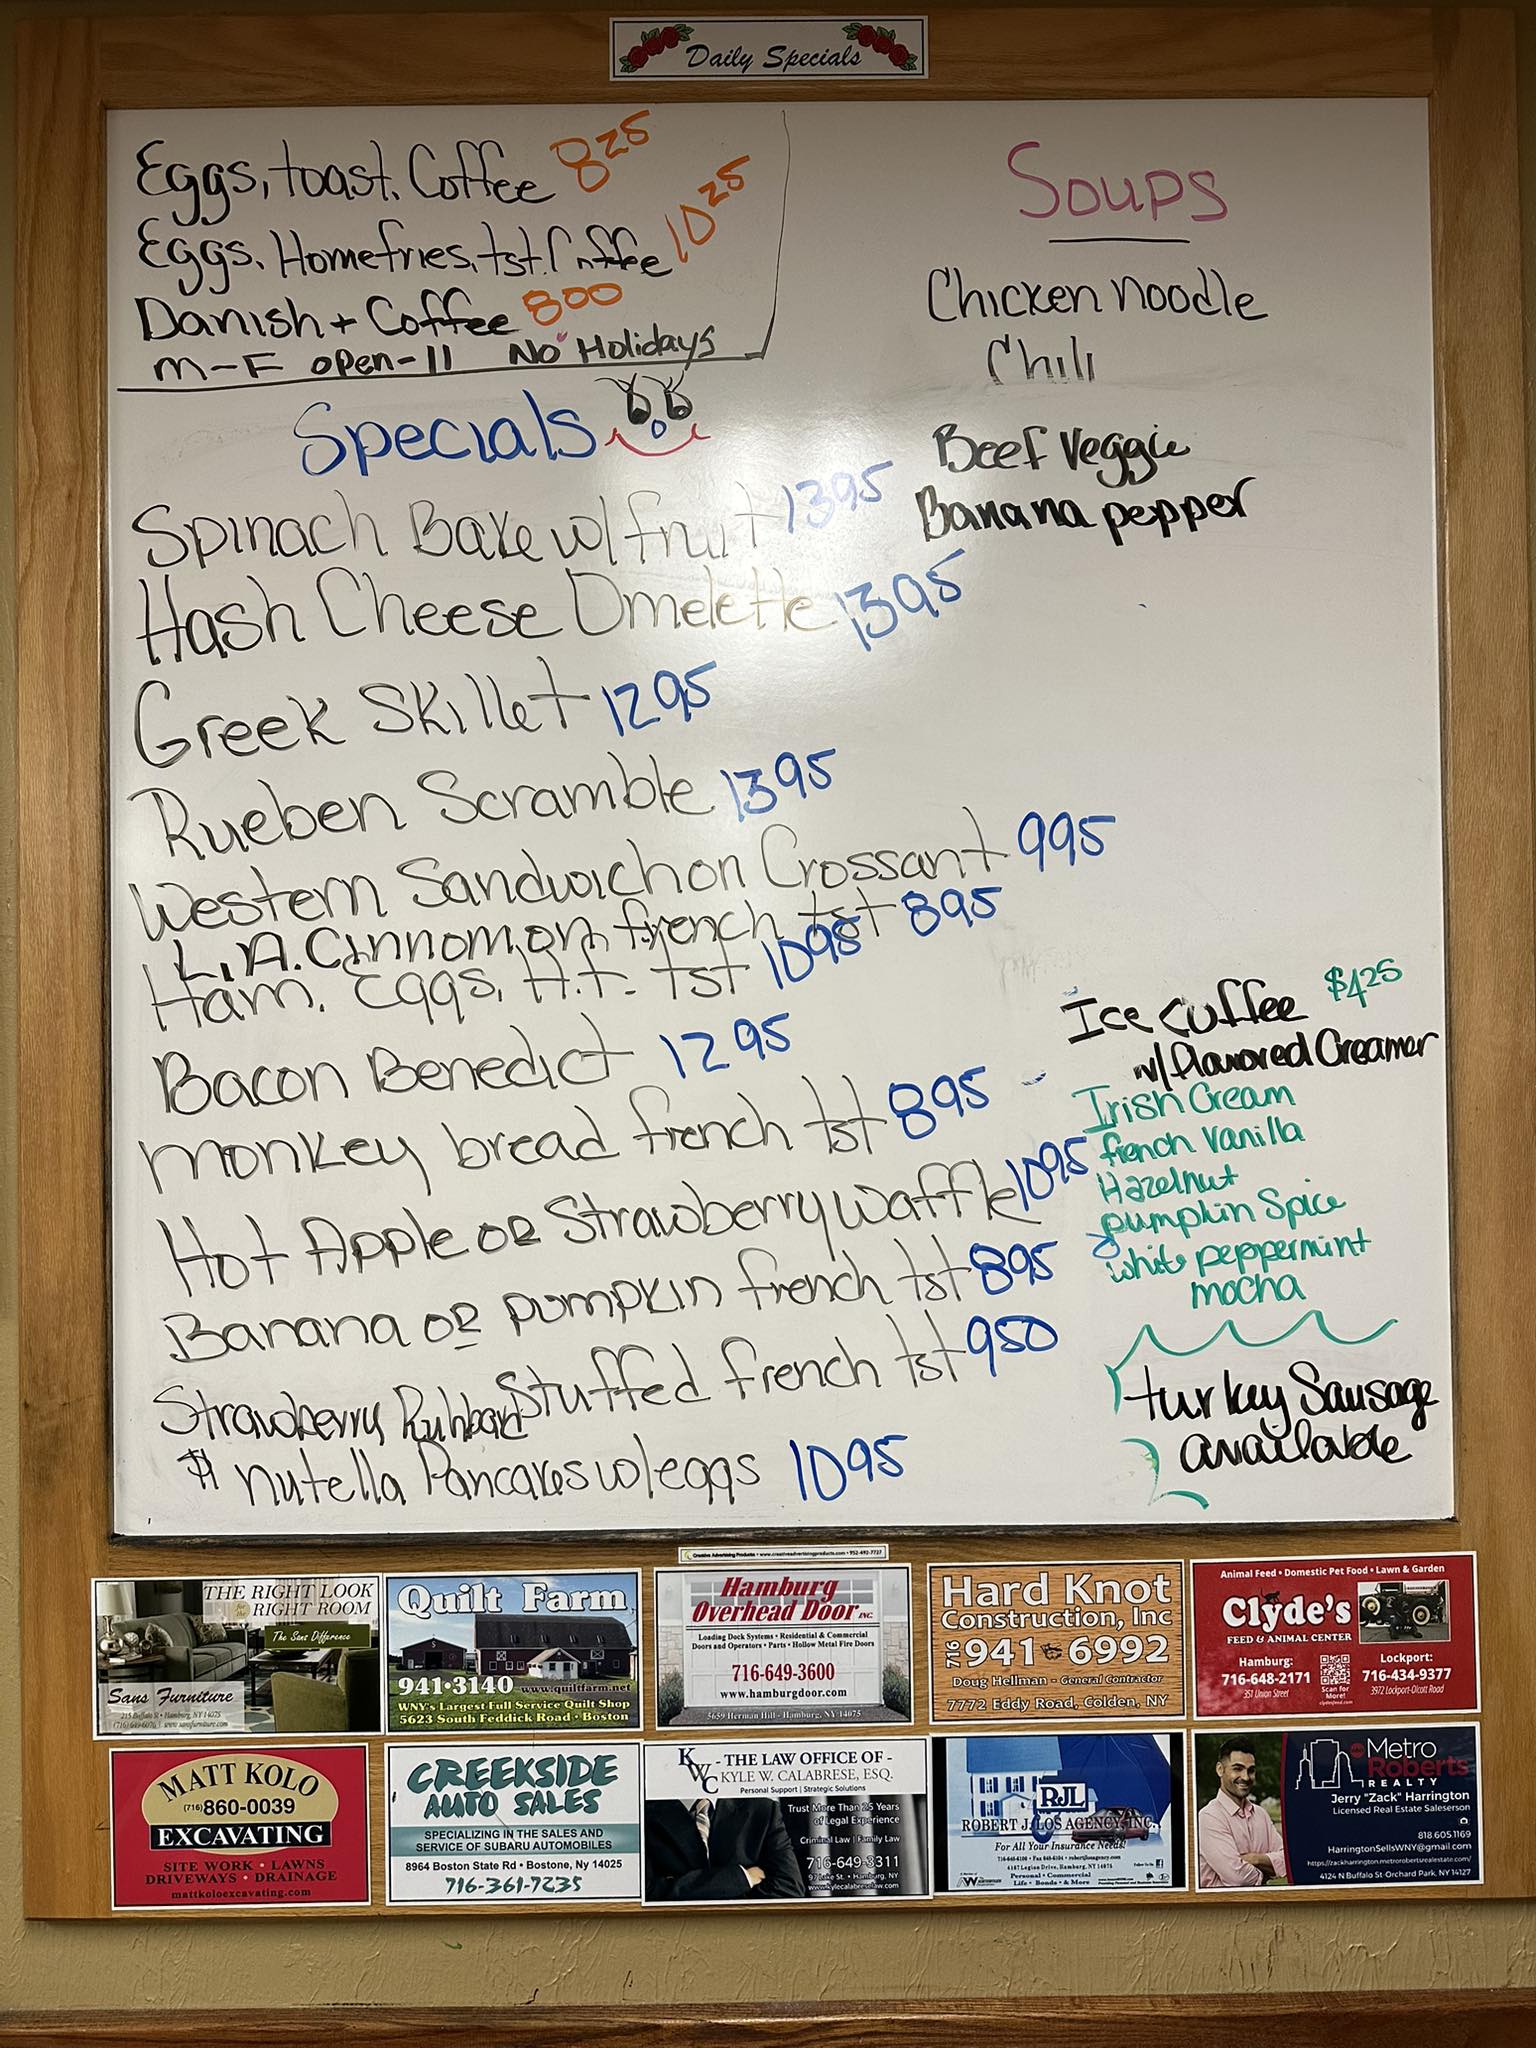 Daily Specials
Eggs, toast. Coffee 8 25
Eggs. Homefries, tst. Coffee 10 25
Danish + Coffee 8 00
M-F open-11 No Holidays
Soups
Chicken noodle
Chili
Beef Veggie
Banana pepper
Specials
Spinach Bake w/ fruit 13 95
Hash Cheese Omelette 13 95
Greek Skillet 12 95
Rueben Scramble 13 95
Western Sandwich on Crossant 9 95
L.A. Cinnomon french tst 8 95
Ham. Eggs. H.F. Tst 10 95
Bacon Benedict 12 95
Monkey bread french tst 8 95
Hot Apple or Strawberry Waffle 10 95
Banana or pumpkin french tst 8 95
Strawberry Ruhbard Stuffed french tst 9 50
Nutella Pancakes w/ eggs 10 95
Ice coffee $4 25
w/ flavored Creamer
Irish Cream
french Vanilla
Hazelnut
pumpkin Spice
white peppermint
mocha
turkey Sausage
available
Creative Advertising Products • www.creativeadvertisingproducts.com • 952-492-7727
THE RIGHT LOOK
RIGHT ROOM
The Sans Difference
Sans Furniture
215 Buffalo St • Hamburg, NY 14075
www.sansfurniture.com
Quilt Farm
941•3140 www.quiltfarm.net
WNY's Largest Full Service Quilt Shop
5623 South Feddick Road • Boston
Hamburg
Overhead Door INC.
Loading Dock Systems • Residential & Commercial
Doors and Operators • Parts • Hollow Metal Fire Doors
716-649-3600
www.hamburgdoor.com
5659 Herman Hill • Hamburg, NY 14075
Hard Knot
Construction, Inc
716 941-6992
Doug Hellman - General Contractor
7772 Eddy Road, Colden, NY
Animal Feed • Domestic Pet Food • Lawn & Garden
Clyde's
FEED & ANIMAL CENTER
Hamburg:
716-648-2171
351 Union Street
Scan for
More!
clydesfeed.com
Lockport:
716-434-9377
3972 Lockport-Olcott Road
MATT KOLO
(716) 860-0039
EXCAVATING
SITE WORK • LAWNS
DRIVEWAYS • DRAINAGE
mattkoloexcavating.com
CREEKSIDE
AUTO SALES
SPECIALIZING IN THE SALES AND
SERVICE OF SUBARU AUTOMOBILES
8964 Boston State Rd • Bostone, Ny 14025
716-361-7235
KWC
- THE LAW OFFICE OF -
KYLE W. CALABRESE, ESQ.
Personal Support | Strategic Solutions
Trust More Than 25 Years
of Legal Experience
Criminal Law | Family Law
716-649-3311
97 Lake St. • Hamburg, NY
www.kylecalabreselaw.com
RJL
ROBERT J. LOS AGENCY, INC.
For All Your Insurance Needs!
4187 Legion Drive, Hamburg, NY 14075
Personal • Commercial
Life • Bonds • & More
Metro
Roberts
REALTY
Jerry "Zack" Harrington
Licensed Real Estate Saleserson
818.605.1169
HarringtonSellsWNY@gmail.com
https://zackharrington.metrorobertsrealestate.com/
4124 N Buffalo St-Orchard Park, NY 14127